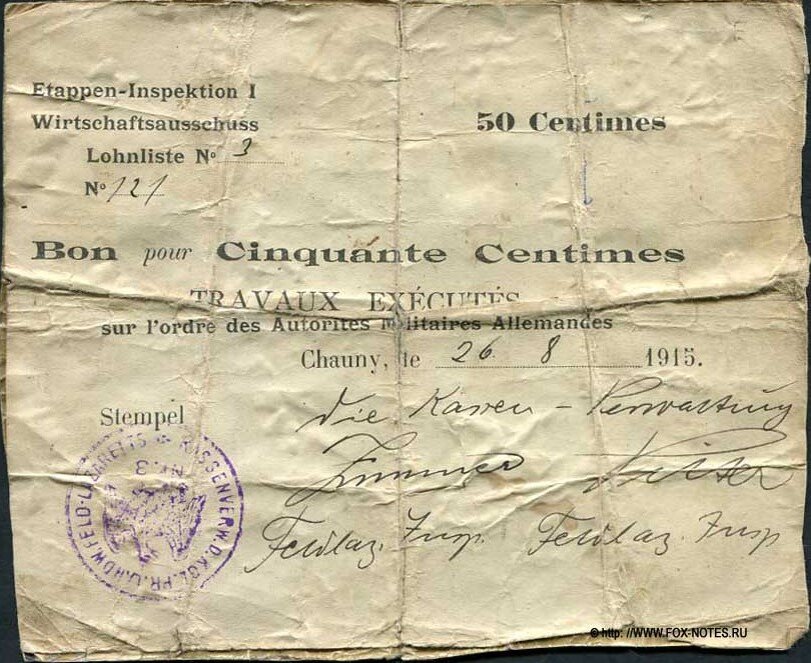 Etappen-Inspektion I
Wirtschaftsausschuss
50 Centimes
Lohnliste Nº 3
Nº 121
Bon pour Cinquante Centimes
TRAVAUX EXÉCUTÉS
sur l'ordre des Autorites Militaires Allemandes
Chauny, le 26 8 1915.
Stempel
Die Kassen-Verwaltung
Feldlaz. Insp. Feldlaz. Insp
KASSENVERW. D. KGL. PR. LANDW. FELD-LAZARETTS
Nº 3
© http: //WWW.FOX-NOTES.RU